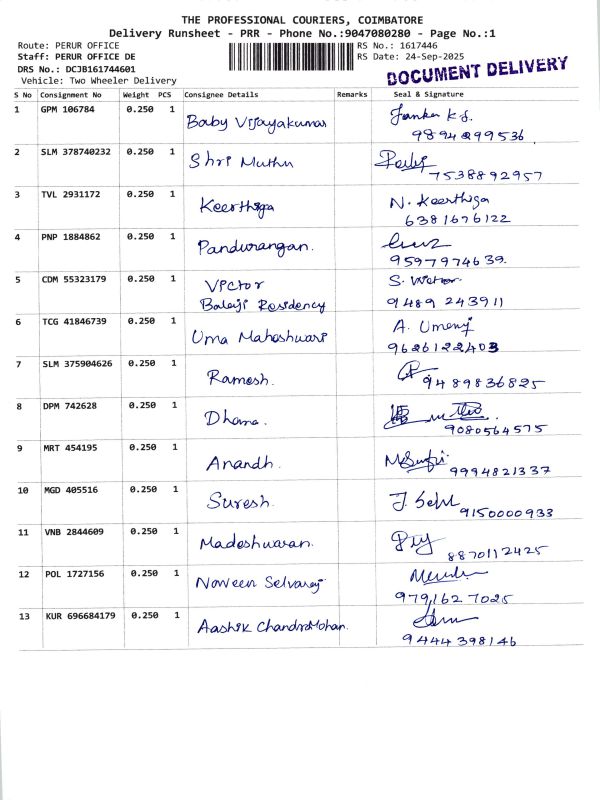 THE PROFESSIONAL COURIERS, COIMBATORE
Delivery Runsheet - PRR - Phone No.:9047080280 - Page No.:1
Route: PERUR OFFICE RS No.: 1617446
Staff: PERUR OFFICE DE RS Date: 24-Sep-2025
DRS No.: DCJB161744601
DOCUMENT DELIVERY
Vehicle: Two Wheeler Delivery
S No Consignment No Weight PCS Consignee Details Remarks Seal & Signature
1 GPM 106784 0.250 1 Baby Vijayakumar
9894299536
2 SLM 378740232 0.250 1 Shri Muthu
7538892957
3 TVL 2931172 0.250 1 Keerthiga N. Keerthiga
6381676122
4 PNP 1884862 0.250 1 Pandurangan.
9597974639.
5 CDM 55323179 0.250 1 Victor S.
Balaji Residency 9489 243911
6 TCG 41846739 0.250 1 Uma Maheshwari A.
9626122403
7 SLM 375904626 0.250 1 Ramesh.
9489836825
8 DPM 742628 0.250 1 Dhana.
9080564575
9 MRT 454195 0.250 1 Anandh.
9994821337
10 MGD 405516 0.250 1 Suresh.
9150000933
11 VNB 2844609 0.250 1 Madeshwaran.
8870112425
12 POL 1727156 0.250 1 Naveen Selvaraj
9791627025
13 KUR 696684179 0.250 1 Aashik ChandraMohan.
9444398146